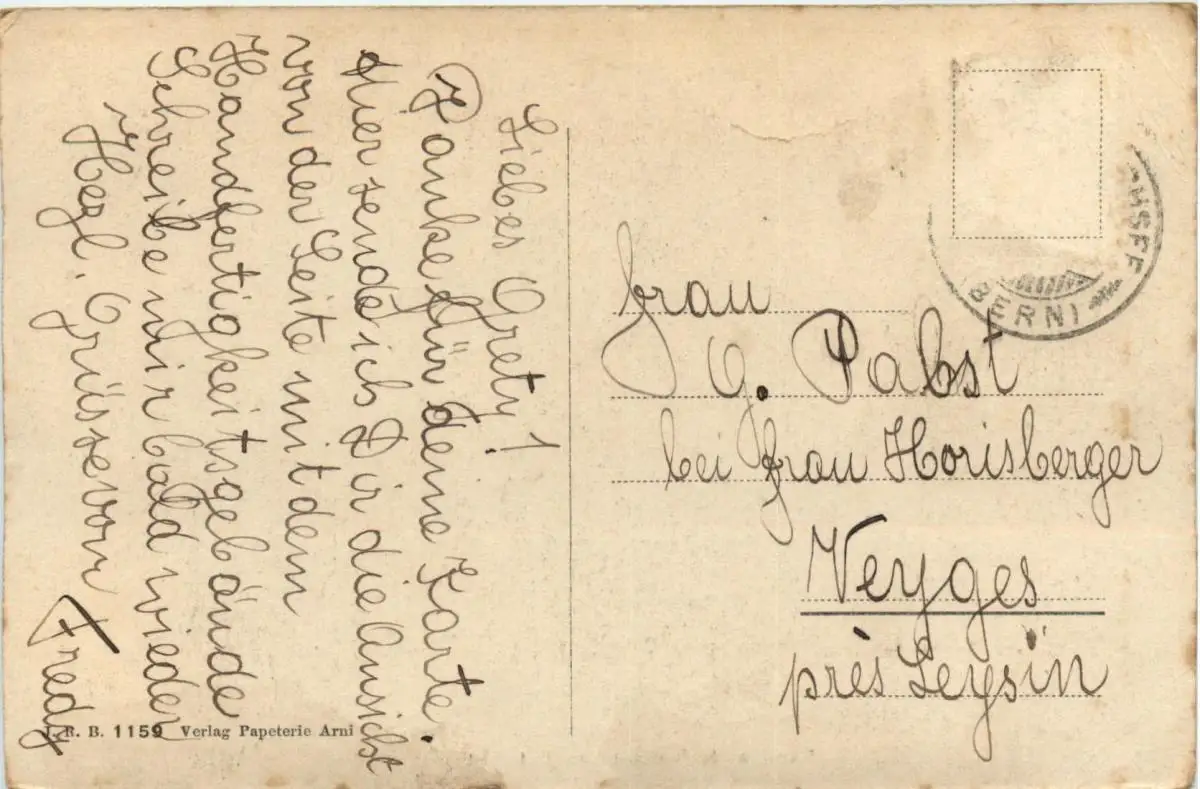 Liebes Grety!
Danke für deine Karte.
Hier sende ich Dir die Ansicht
von der Seite mit dem
Handfertigkeitsgebäude
Schreibe mir bald wieder
Herzl. Grüsse von
Fredy
J. R. B. 1159 Verlag Papeterie Arni
Frau
G. Pabst
bei Frau Horisberger
Veyges
près Leysin
(BERN)